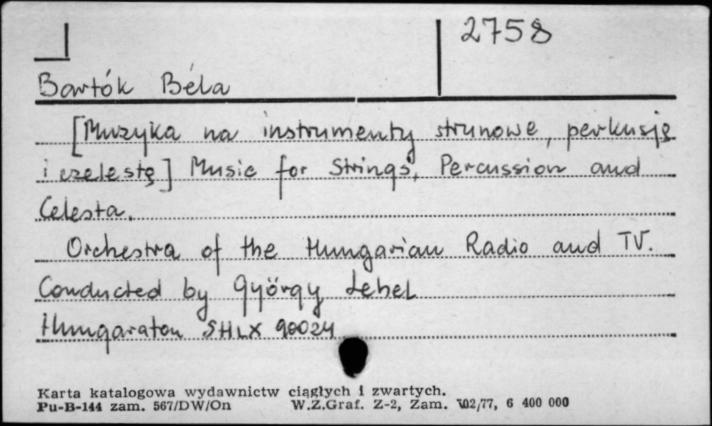 2758
Bartók Béla
[Muzyka na instrumenty strunowe, perkusję
i czelestę] Music for Strings, Percussion and
Celesta.
Orchestra of the Hungarian Radio and TV.
Conducted by György Lehel
Hungaraton SHLX 90024
Karta katalogowa wydawnictw ciągłych i zwartych.
Pu-B-144 zam. 567/DW/On W.Z.Graf. Z-2, Zam. 102/77, 6 400 000